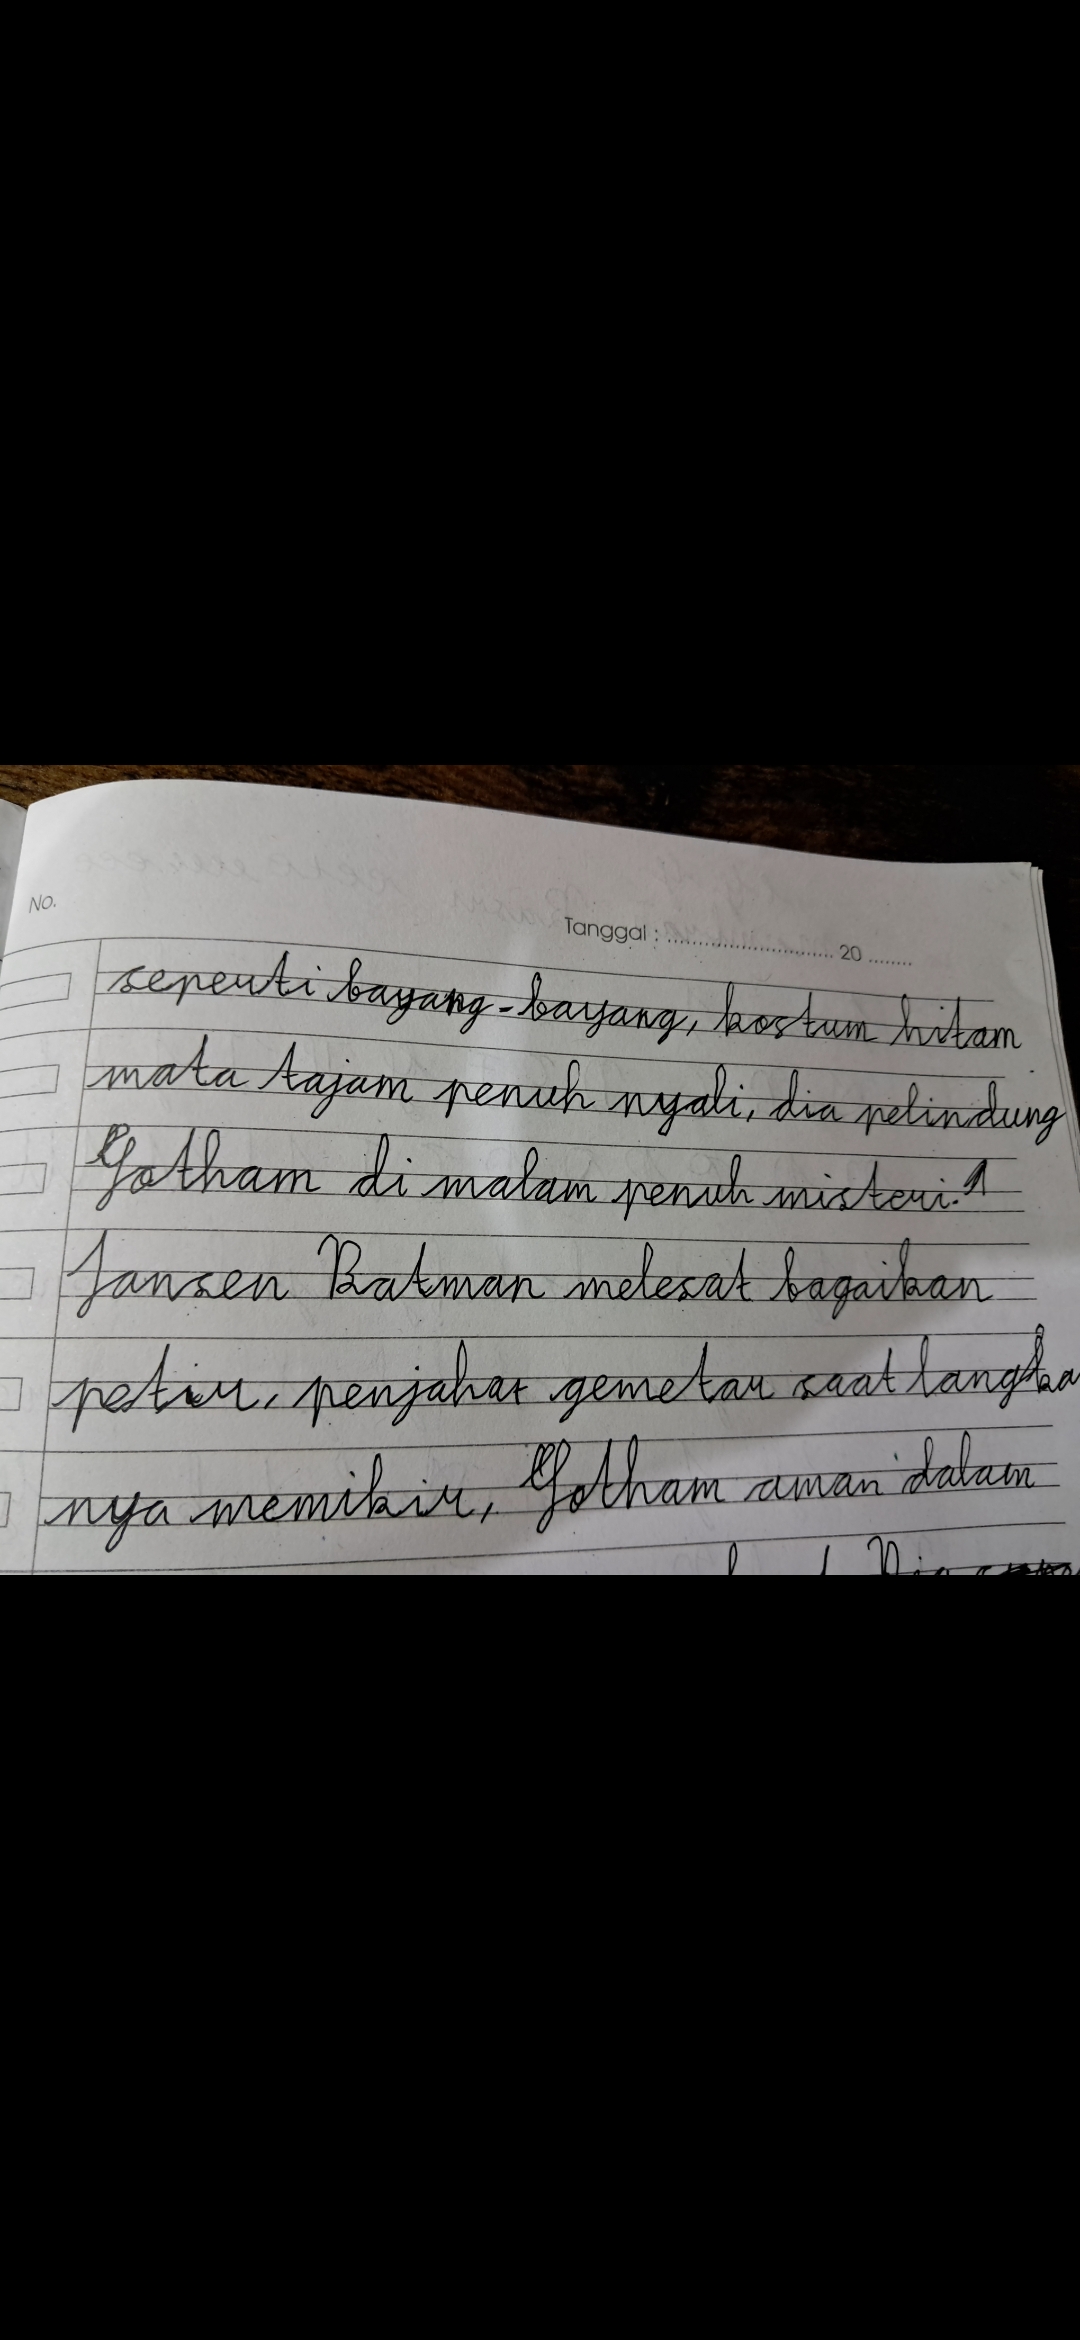 No.
Tanggal : .................... 20 ........
seperti bayang-bayang, kostum hitam
mata tajam penuh nyali, dia pelindung
Gotham di malam penuh misteri.
Jansen Batman melesat bagaikan
petir, penjahat gemetar saat langka
nya memikir, Gotham aman dalam